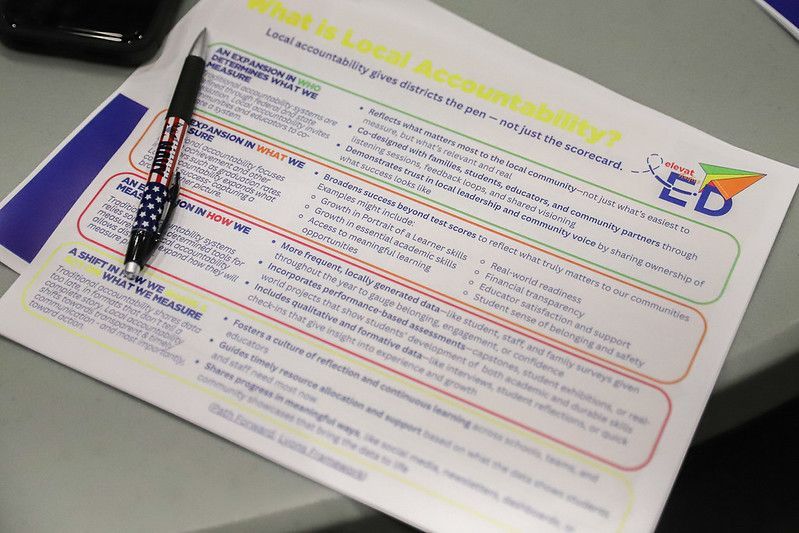 What is Local Accountability?
Local accountability gives districts the pen — not just the scorecard.
elevat
ED
AN EXPANSION IN WHO
DETERMINES WHAT WE
MEASURE
Traditional accountability systems are
through federal and state
Local accountability invites
and educators to co-
a system
• Reflects what matters most to the local community—not just what's easiest to
measure, but what's relevant and real
• Co-designed with families, students, educators, and community partners through
listening sessions, feedback loops, and shared visioning
• Demonstrates trust in local leadership and community voice by sharing ownership of
what success looks like
EXPANSION IN WHAT WE
accountability focuses
achievement and
such as graduation rates.
accountability expands what
capturing a
picture.
• Broadens success beyond test scores to reflect what truly matters to our communities
Examples might include:
○ Growth in Portrait of a Learner skills
○ Growth in essential academic skills
○ Access to meaningful learning
opportunities
○ Real-world readiness
○ Financial transparency
○ Educator satisfaction and support
○ Student sense of belonging and safety
AN EXPANSION IN HOW WE
MEASURE
Traditional accountability systems
tools for
how they will
measure
• More frequent, locally generated data—like student, staff, and family surveys given
throughout the year to gauge belonging, engagement, or confidence
• Incorporates performance-based assessments—capstones, student exhibitions, or real-
world projects that show students' development of both academic and durable skills
• Includes qualitative and formative data—like interviews, student reflections, or quick
check-ins that give insight into experience and growth
A SHIFT IN HOW WE
WHAT WE MEASURE
Traditional accountability shares data
too late, in formats that don't tell a
complete story. Local accountability
shifts toward transparent & timely
communication - and most importantly,
toward action.
• Fosters a culture of reflection and continuous learning across schools, teams, and
educators
• Guides timely resource allocation and support based on what the data shows students
and staff need most now
• Shares progress in meaningful ways, like social media, newsletters, dashboards, or
community showcases that bring the data to life
(Path Forward: Lyons Framework)